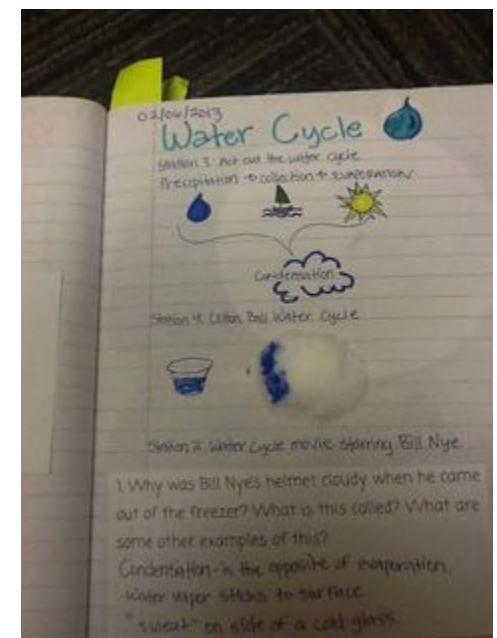 02/06/2013
Water Cycle
Station 3: Act out the water cycle
Precipitation → collection → evaporation
Condensation
Station 4: Cotton Ball Water Cycle
Station 2: Water Cycle movie starring Bill Nye
1. Why was Bill Nye's helmet cloudy when he came
out of the freezer? What is this called? What are
some other examples of this?
Condensation - is the opposite of evaporation,
water vapor sticks to surface.
"sweat" on side of a cold glass